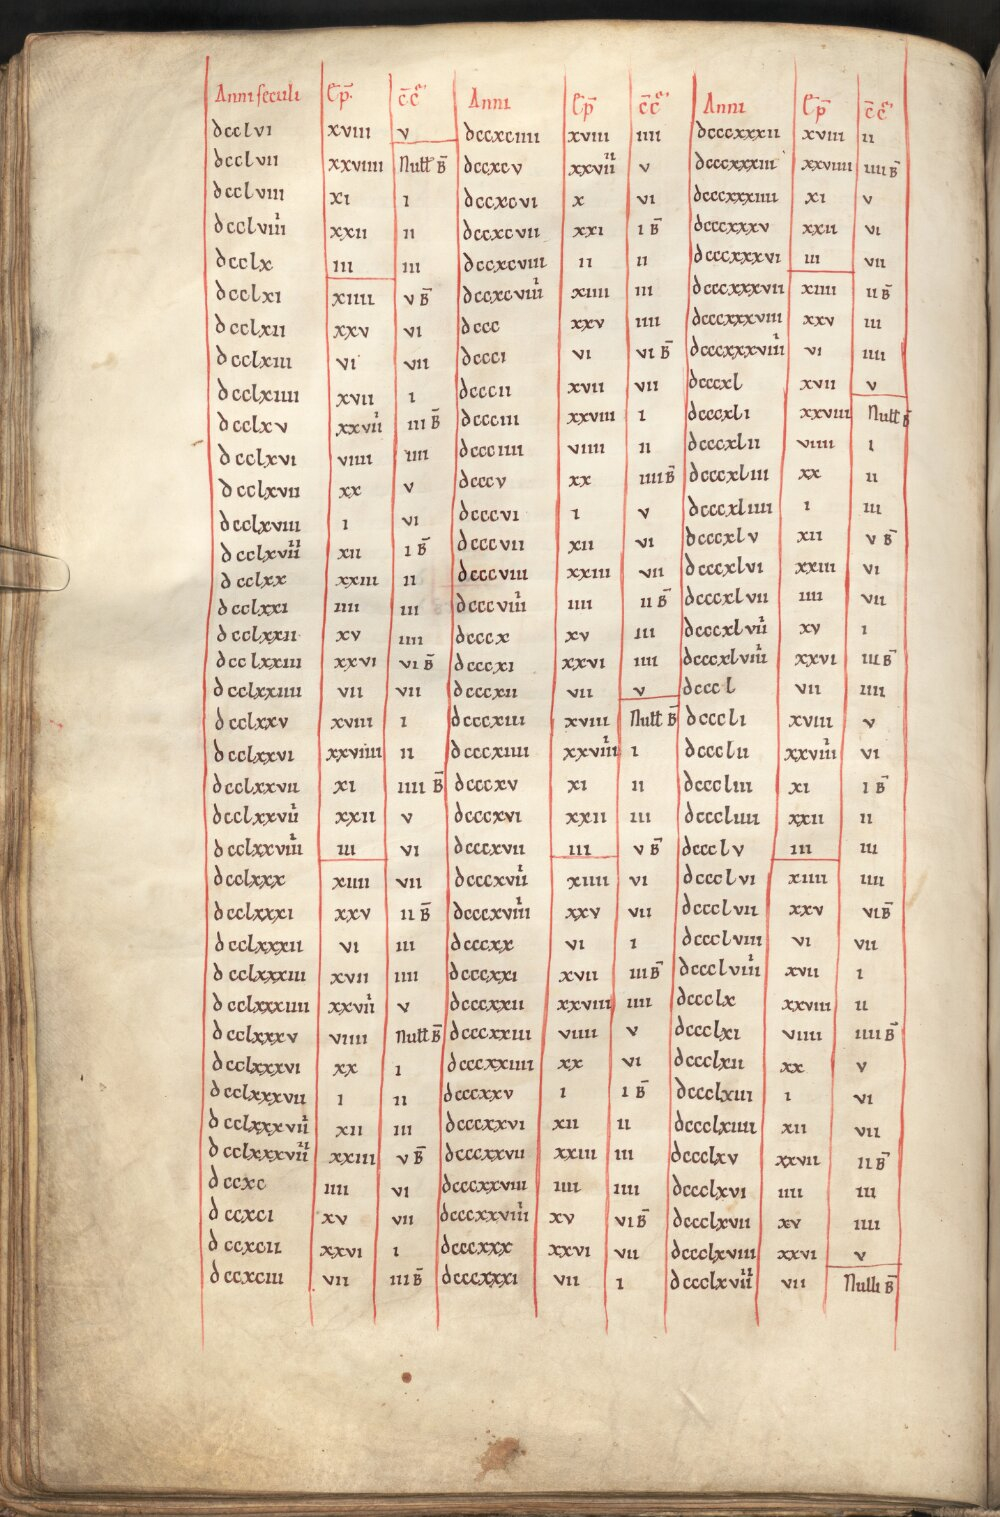 Anni seculi Ep̄. c̄c̄ Anni Ep̄ c̄c̄ Anni Ep̄ c̄c̄
dcclvi xviii v dccxciiii xviii iiii dcccxxxii xviii ii
dcclvii xxviiii Null B̄ dccxcv xxviiii v dcccxxxiii xxviiii iiii B̄
dcclviii xi i dccxcvi x vi dcccxxxiiii xi v
dcclviiii xxii ii dccxcvii xxi i B̄ dcccxxxv xxii vi
dcclx iii iii dccxcviii ii ii dcccxxxvi iii vii
dcclxi xiiii v B̄ dccxcviiii xiiii iii dcccxxxvii xiiii ii B̄
dcclxii xxv vi dccc xxv iiii dcccxxxviii xxv iii
dcclxiii vi vii dccci vi vi B̄ dcccxxxviiii vi iiii
dcclxiiii xvii i dcccii xvii vii dcccxl xvii v
dcclxv xxviii iii B̄ dccciii xxviii i dcccxli xxviii Null B̄
dcclxvi viiii iiii dccciiii viiii ii dcccxlii viiii i
dcclxvii xx v dcccv xx iiii B̄ dcccxliii xx ii
dcclxviii i vi dcccvi i v dcccxliiii i iii
dcclxviiii xii i B̄ dcccvii xii vi dcccxlv xii v B̄
dcclxx xxiii ii dcccviii xxiii vii dcccxlvi xxiii vi
dcclxxi iiii iii dcccviiii iiii ii B̄ dcccxlvii iiii vii
dcclxxii xv iiii dcccx xv iii dcccxlviii xv i
dcclxxiii xxvi vi B̄ dcccxi xxvi iiii dcccxlviiii xxvi iii B̄
dcclxxiiii vii vii dcccxii vii v dcccl vii iiii
dcclxxv xviii i dcccxiii xviii Null B̄ dcccli xviii v
dcclxxvi xxviiii ii dcccxiiii xxviiii i dccclii xxviiii vi
dcclxxvii xi iiii B̄ dcccxv xi ii dcccliii xi i B̄
dcclxxviii xxii v dcccxvi xxii iii dcccliiii xxii ii
dcclxxviiii iii vi dcccxvii iii v B̄ dccclv iii iii
dcclxxx xiiii vii dcccxviii xiiii vi dccclvi xiiii iiii
dcclxxxi xxv ii B̄ dcccxviiii xxv vii dccclvii xxv vi B̄
dcclxxxii vi iii dcccxx vi i dccclviii vi vii
dcclxxxiii xvii iiii dcccxxi xvii iii B̄ dccclviiii xvii i
dcclxxxiiii xxviii v dcccxxii xxviii iiii dccclx xxviii ii
dcclxxxv viiii Null B̄ dcccxxiii viiii v dccclxi viiii iiii B̄
dcclxxxvi xx i dcccxxiiii xx vi dccclxii xx v
dcclxxxvii i ii dcccxxv i i B̄ dccclxiii i vi
dcclxxxviii xii iii dcccxxvi xii ii dccclxiiii xii vii
dcclxxxviiii xxiii v B̄ dcccxxvii xxiii iii dccclxv xxvii ii B̄
dccxc iiii vi dcccxxviii iiii iiii dccclxvi iiii iii
dccxci xv vii dcccxxviiii xv vi B̄ dccclxvii xv iiii
dccxcii xxvi i dcccxxx xxvi vii dccclxviii xxvi v
dccxciii vii iii B̄ dcccxxxi vii i dccclxviiii vii Nulli B̄